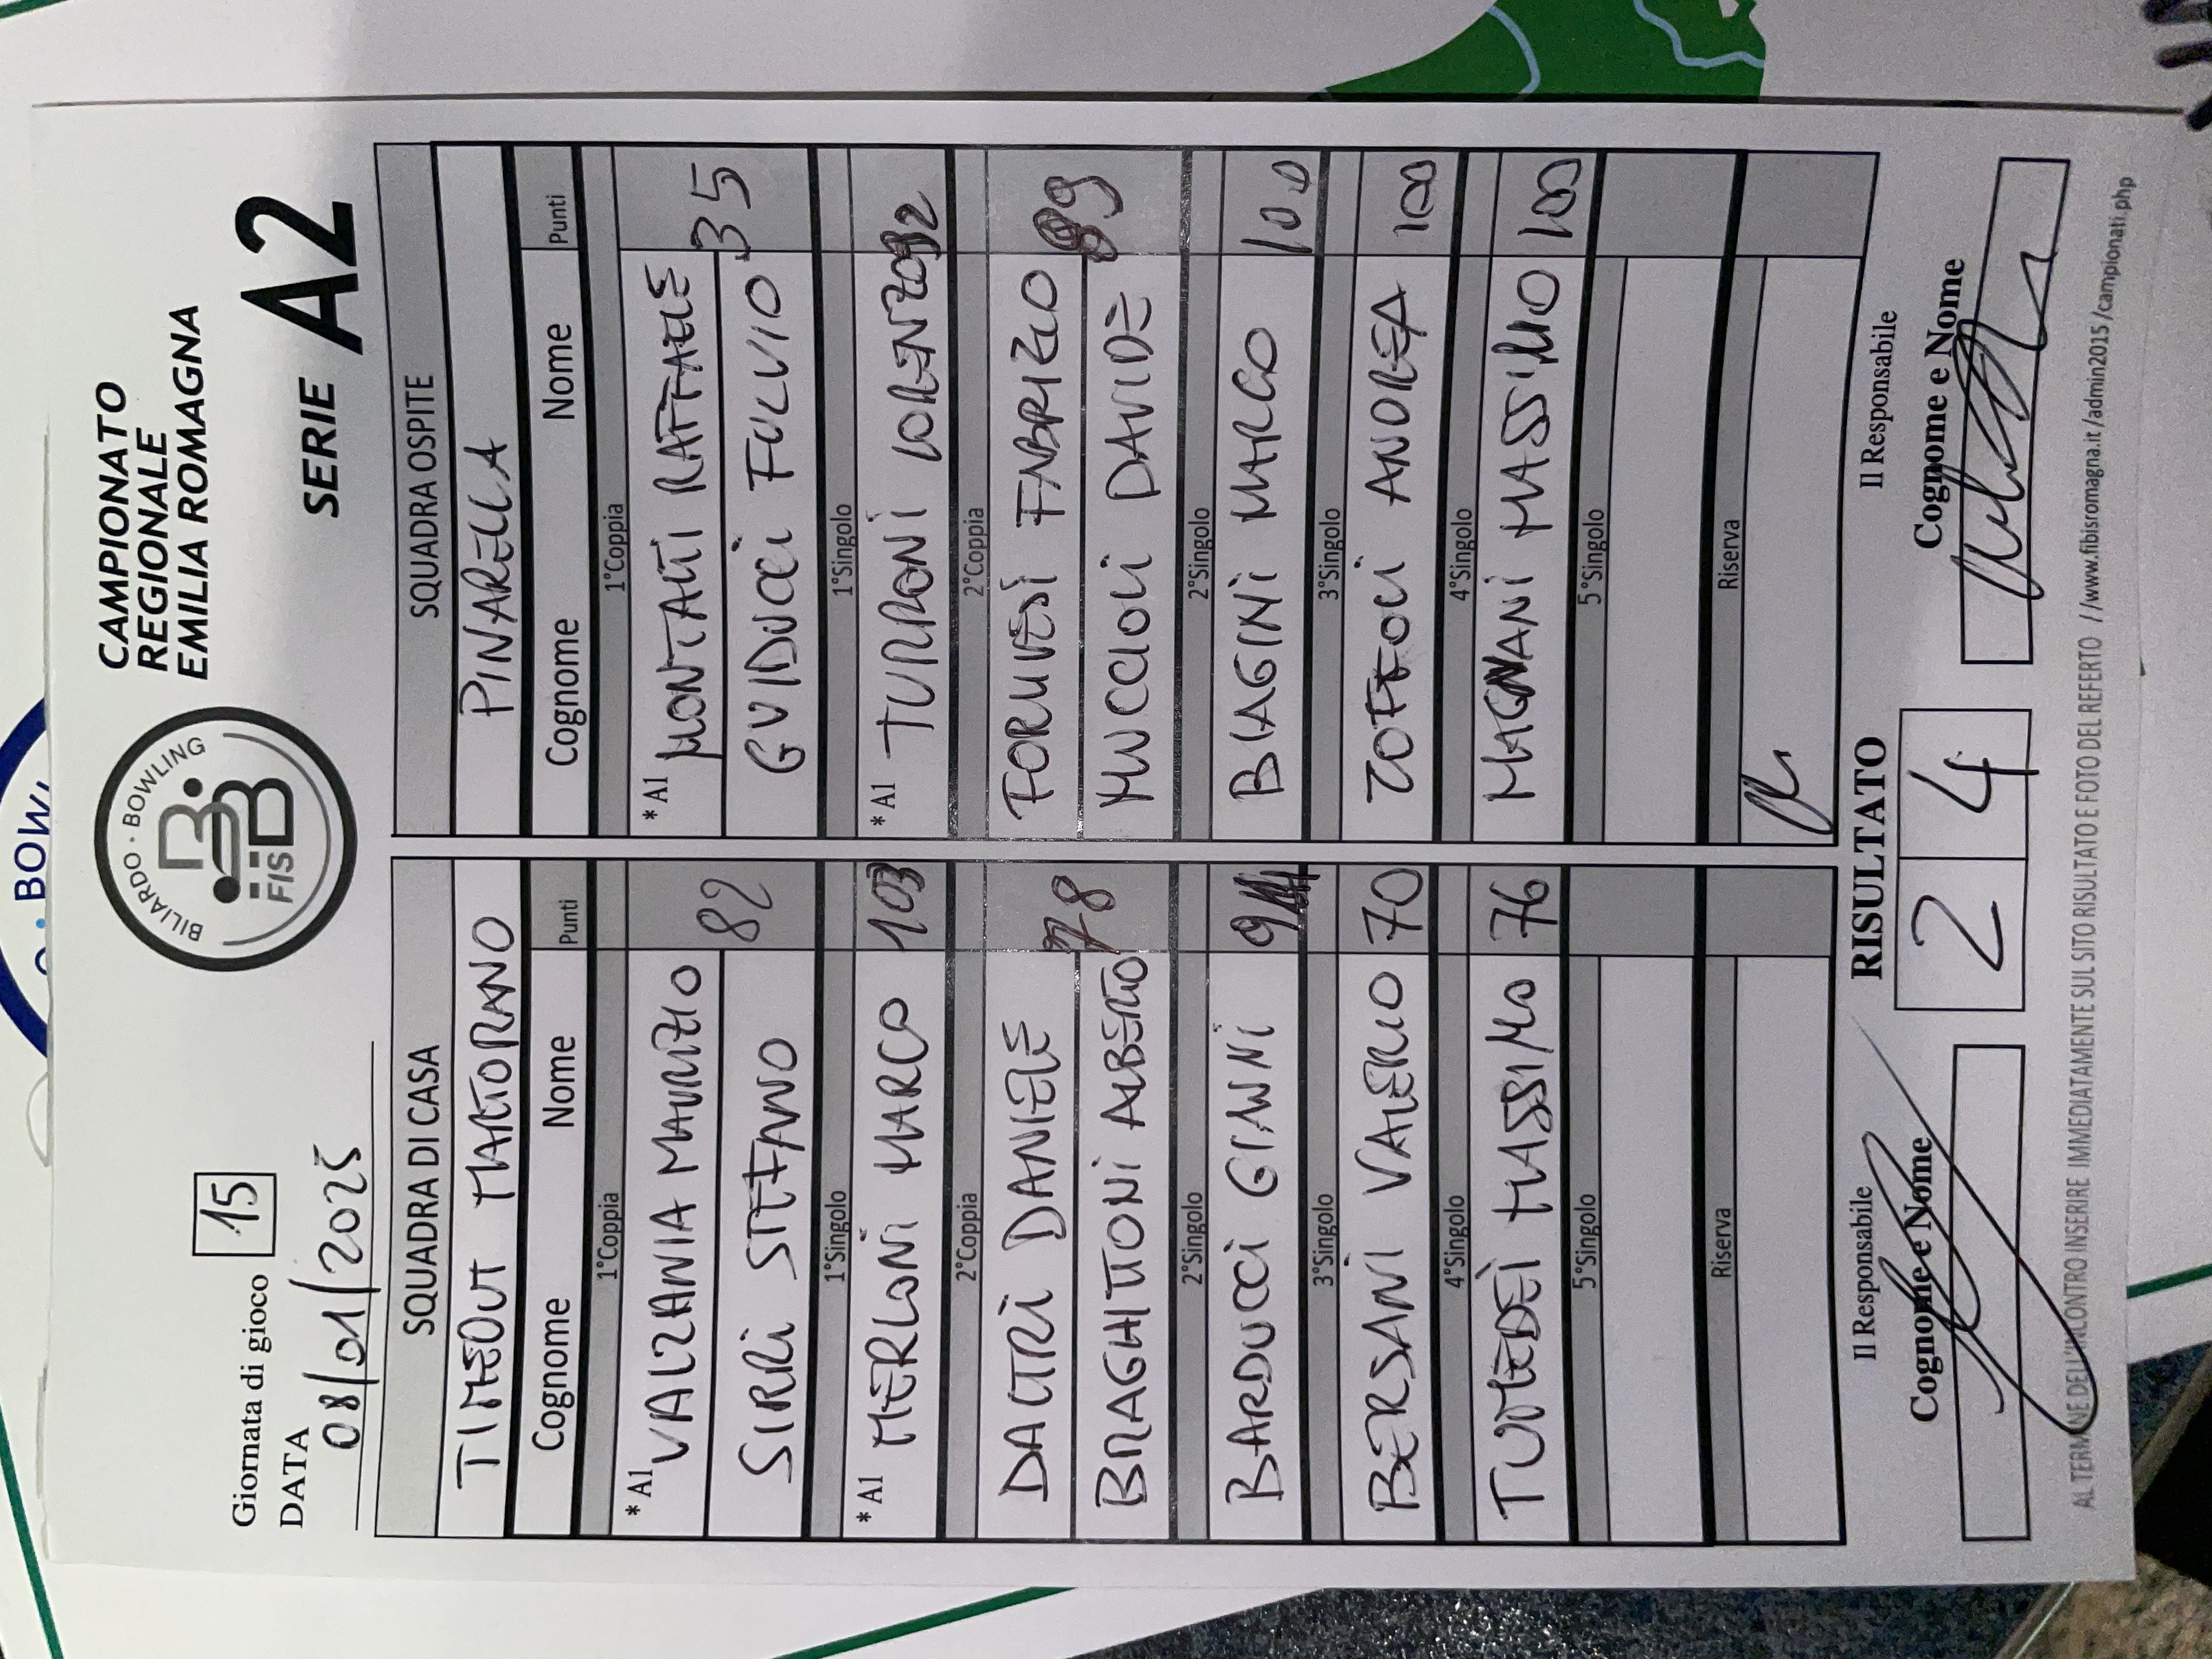 Giornata di gioco 15
DATA
08/01/2025
BILIARDO · BOWLING
FISBB
CAMPIONATO
REGIONALE
EMILIA ROMAGNA
SERIE A2
SQUADRA DI CASA
TIMEOUT MARTORANO
Cognome Nome Punti
1°Coppia
*A1 VALZANIA MAURIZIO
82
SIRRI STEFANO
1°Singolo
*A1 MERLONI MARCO 103
2°Coppia
DALTRI DANIELE
78
BRAGHITTONI ALBERTO
2°Singolo
BARDUCCI GIANNI
3°Singolo
BERSANI VALERIO 70
4°Singolo
TUMEDEI MASSIMO 76
5°Singolo
Riserva
SQUADRA OSPITE
PINARELLA
Cognome Nome Punti
1°Coppia
*A1 MONTALTI RAFFAELE
35
GUIDUCCI FULVIO
1°Singolo
*A1 TURRONI LORENZO 92
2°Coppia
FABRIZIO
99
MUCCIOLI DAVIDE
2°Singolo
BIAGINI MARCO 100
3°Singolo
ZOFFOLI ANDREA 100
4°Singolo
MAGNANI MASSIMO 100
5°Singolo
Riserva
RISULTATO
2 4
Il Responsabile
Cognome e Nome
Il Responsabile
Cognome e Nome
AL TERMINE DELL'INCONTRO INSERIRE IMMEDIATAMENTE SUL SITO RISULTATO E FOTO DEL REFERTO //www.fibisromagna.it/admin2015/campionati.php
· BOWL